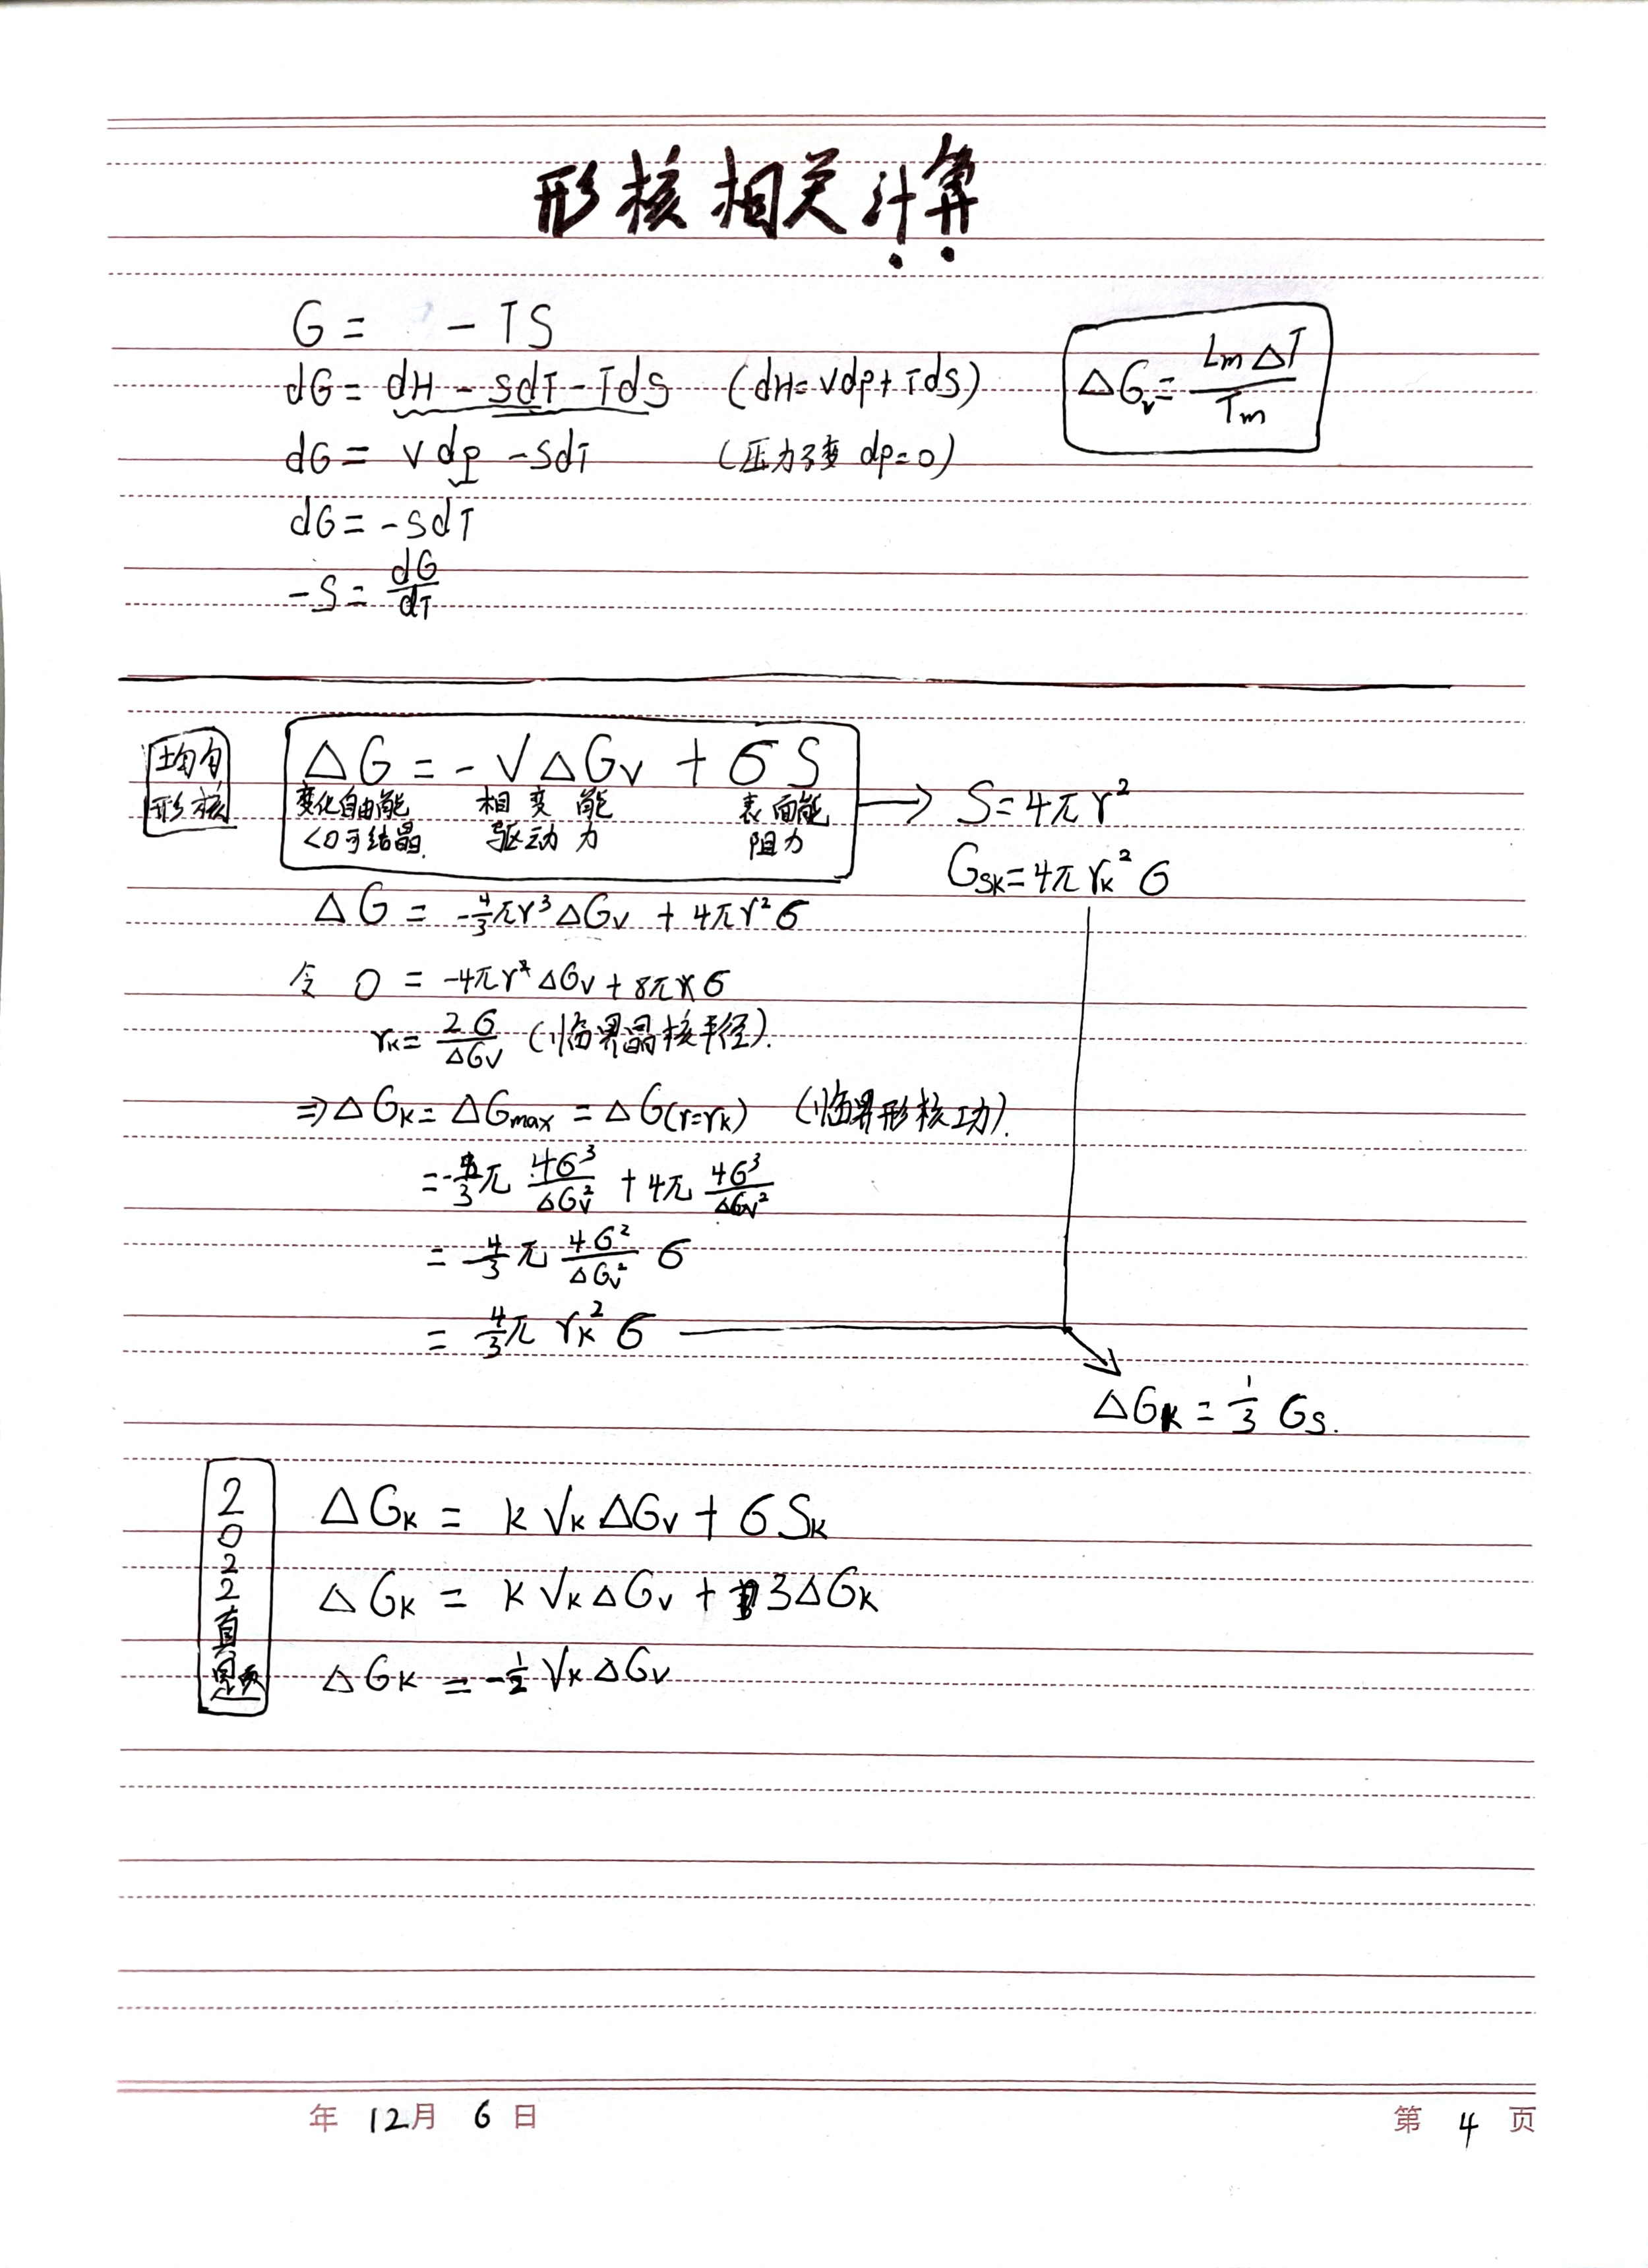 形核相关计算
G = - TS
dG = dH - SdT - TdS (dH=Vdp+TdS)
ΔGv = LmΔT/Tm
dG = Vdp - SdT (压力不变 dp=0)
dG = -SdT
-S = dG/dT
均匀
形核
ΔG = -VΔGv + σS
变化自由能 相变能 表面能
<0可结晶. 驱动力 阻力
→ S=4πr²
Gsk=4πrk²σ
ΔG = -4/3πr³ΔGv + 4πr²σ
令 0 = -4πr²ΔGv + 8πrσ
rk = 2σ/ΔGv (临界晶核半径).
⇒ ΔGk = ΔGmax = ΔG(r=rk) (临界形核功).
= -4/3π 4σ³/ΔGv² + 4π 4σ³/ΔGv²
= 4/3 π 4σ²/ΔGv² σ
= 4/3π rk² σ
ΔGk = 1/3 Gs.
2022真题
ΔGk = k Vk ΔGv + σSk
ΔGk = k Vk ΔGv + 3ΔGk
ΔGk = -1/2 Vk ΔGv
年 12月 6日 第 4 页